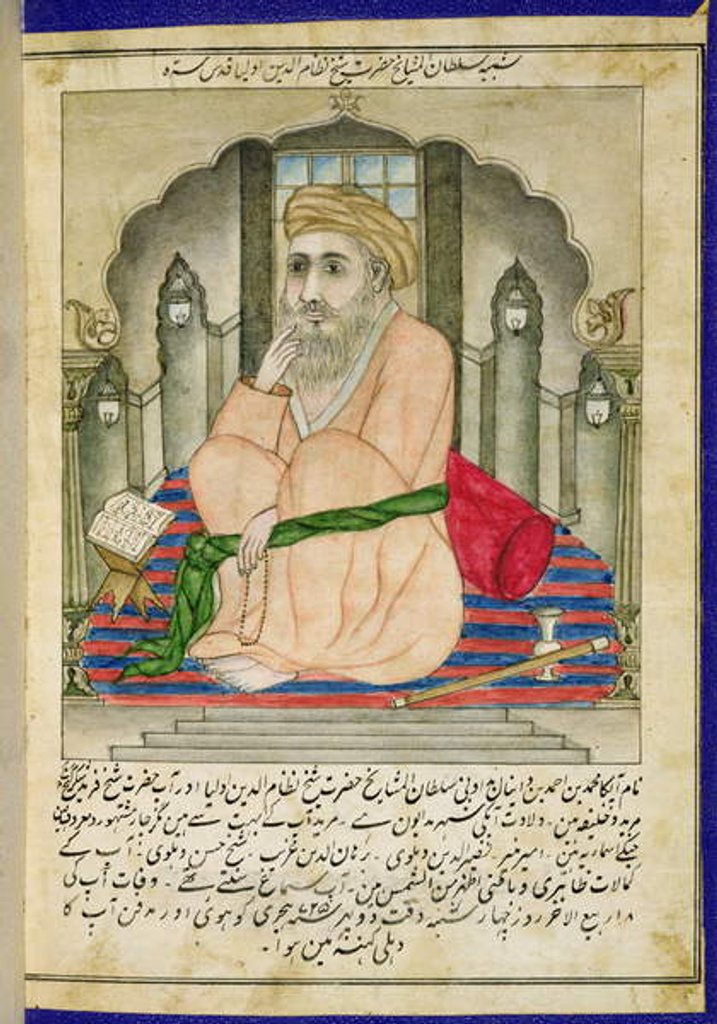 شبیہ سلطان المشایخ حضرت شیخ نظام الدین اولیا قدس سرہ
نام آپکا محمد بن احمد بن دانیال بداونی سلطان المشایخ حضرت شیخ نظام الدین اولیا اور آپ حضرت شیخ فرید
مرید و خلیفہ ہین۔ ولادت آپکی شہر بدایون ہے۔ مرید آپ کے بہت سے ہین مگر چار مشہور و معروف
جنکے اسما یہ ہین۔ امیر خسرو نصیر الدین دہلوی۔ برہان الدین غریب۔ شیخ حسن دہلوی۔ آپ کے
کمالات ظاہری و باطنی اظہر من الشمس ہین۔ آپ سماع سنتے تھے۔ وفات آپ کی
۱۸ ربیع الاخر روز چہار شنبہ وقت دوپہر سنہ ۷۲۵ ہجری کو ہوئی اور مدفن آپ کا
دہلی کہنہ مین ہوا۔